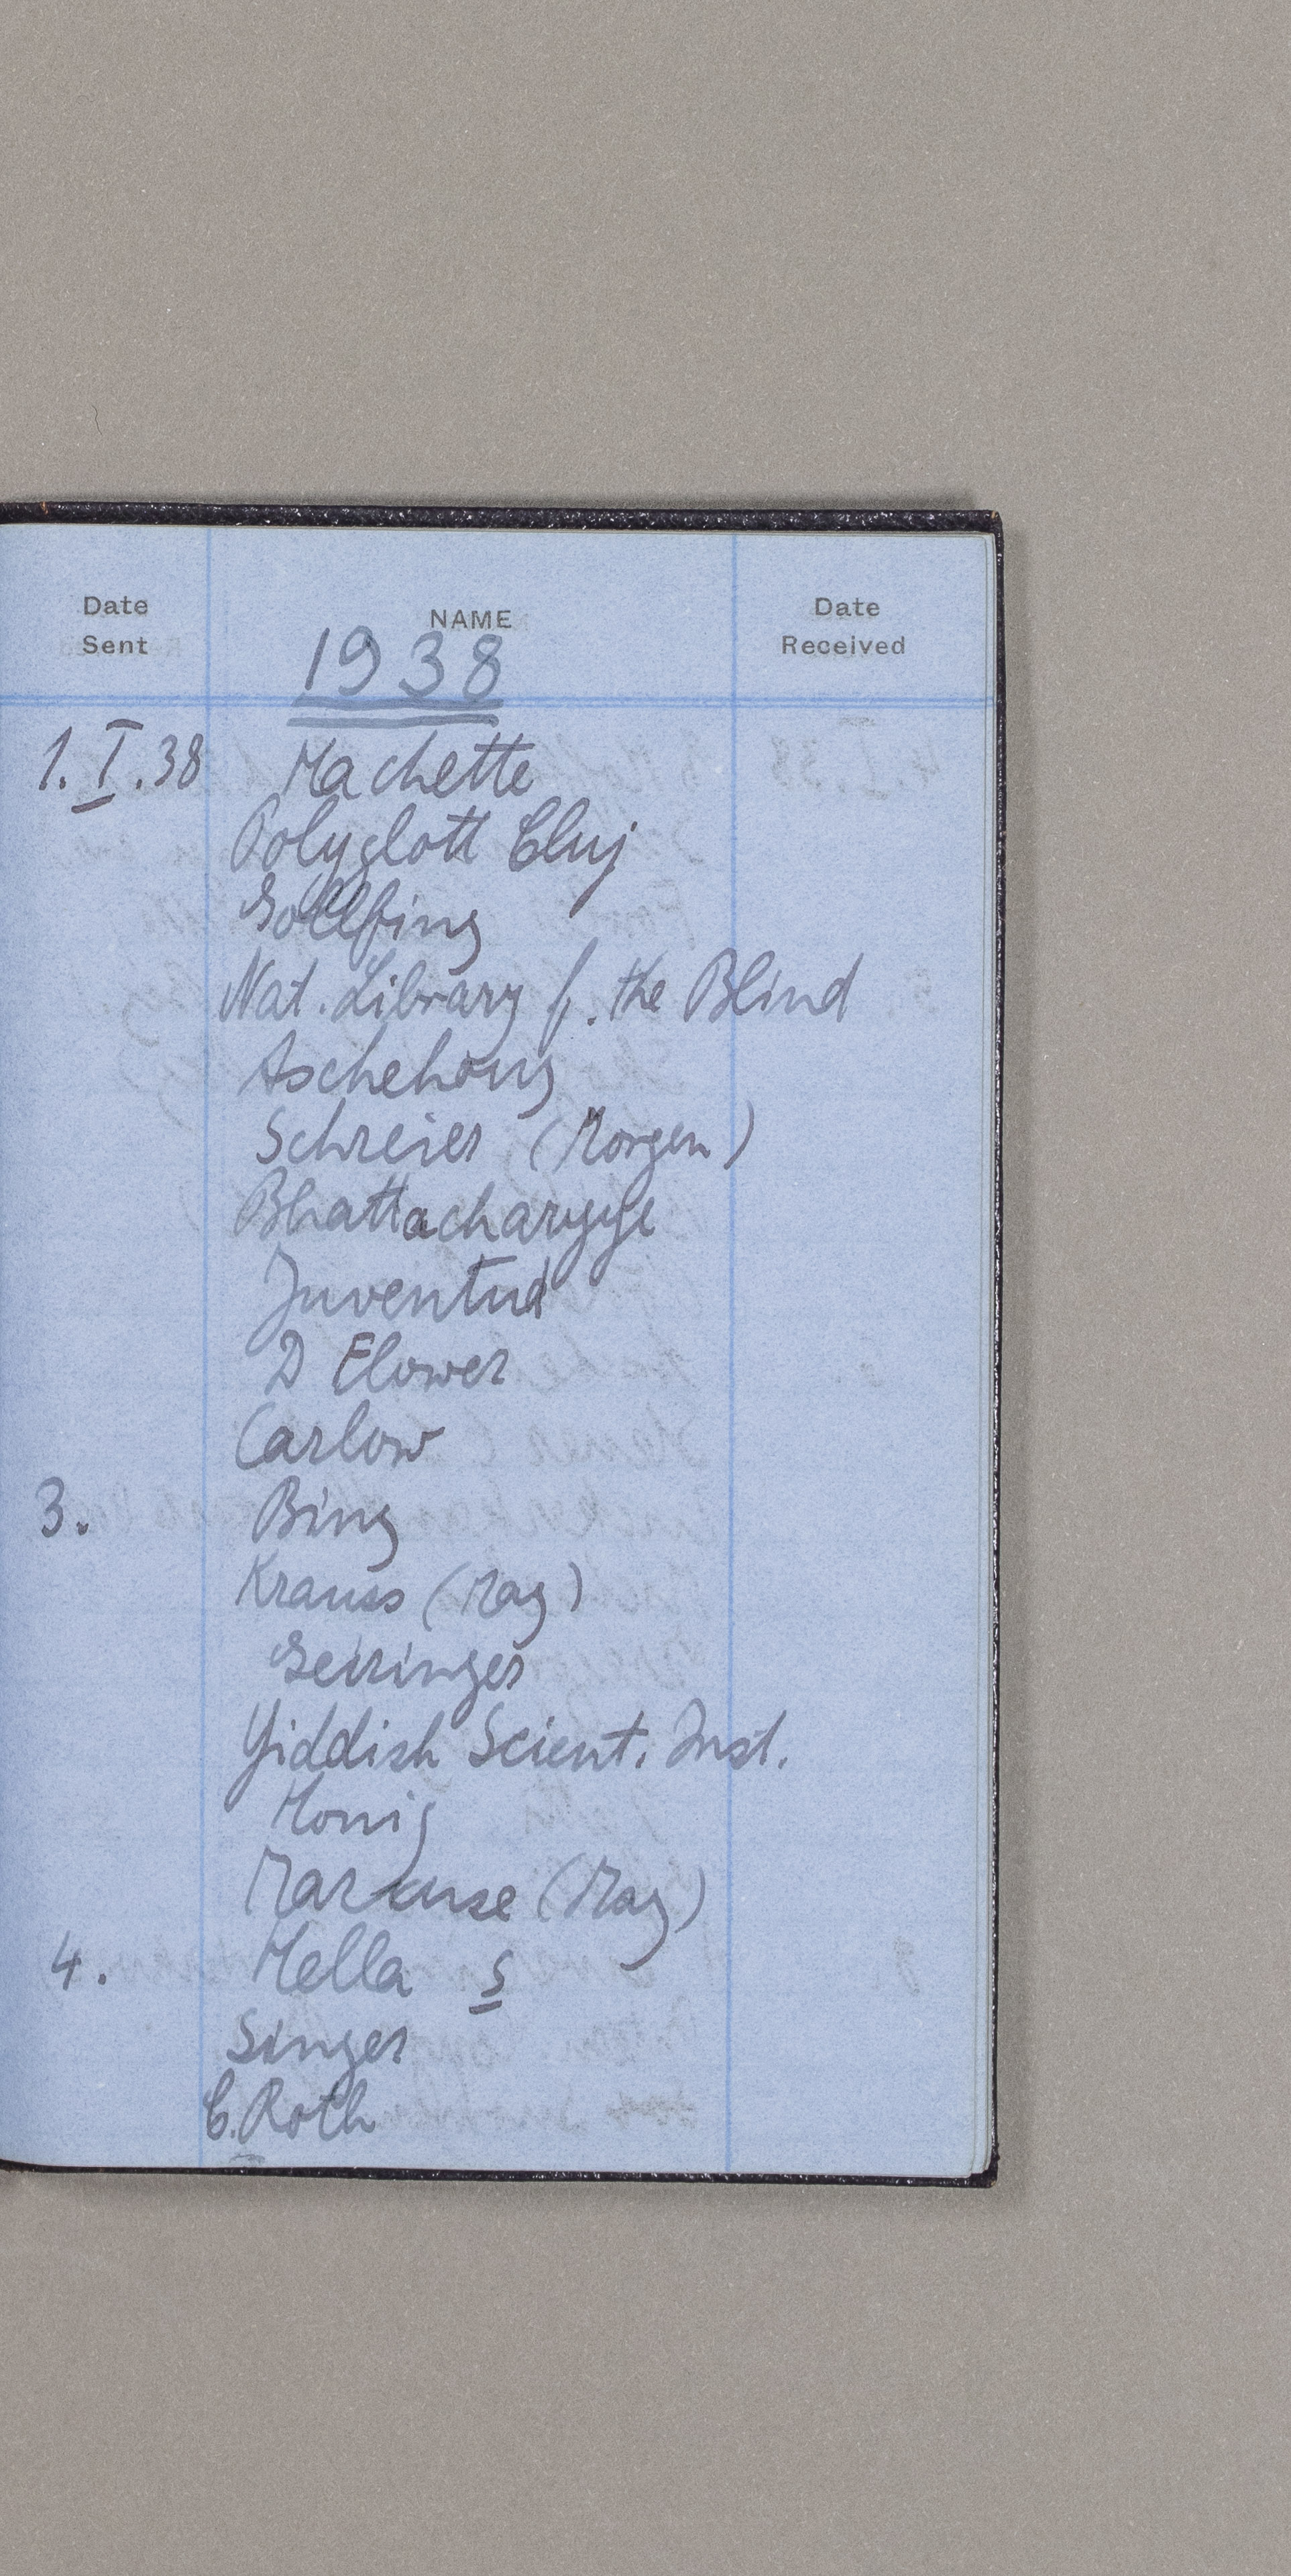 Date Sent NAME Date Received
1938
1.I.38 Hachette
Polyglott Cluj
Gollfing
Nat. Library f. the Blind
Aschehoug
Schreier (Morgen)
Bhattacharyye
Juventud
D Flower
Carlow
3. Bing
Krauss (Mag)
Geiringer
Yiddish Scient. Inst.
Honig
Marcuse (Mag)
4. Hella S
Singer
C. Roth